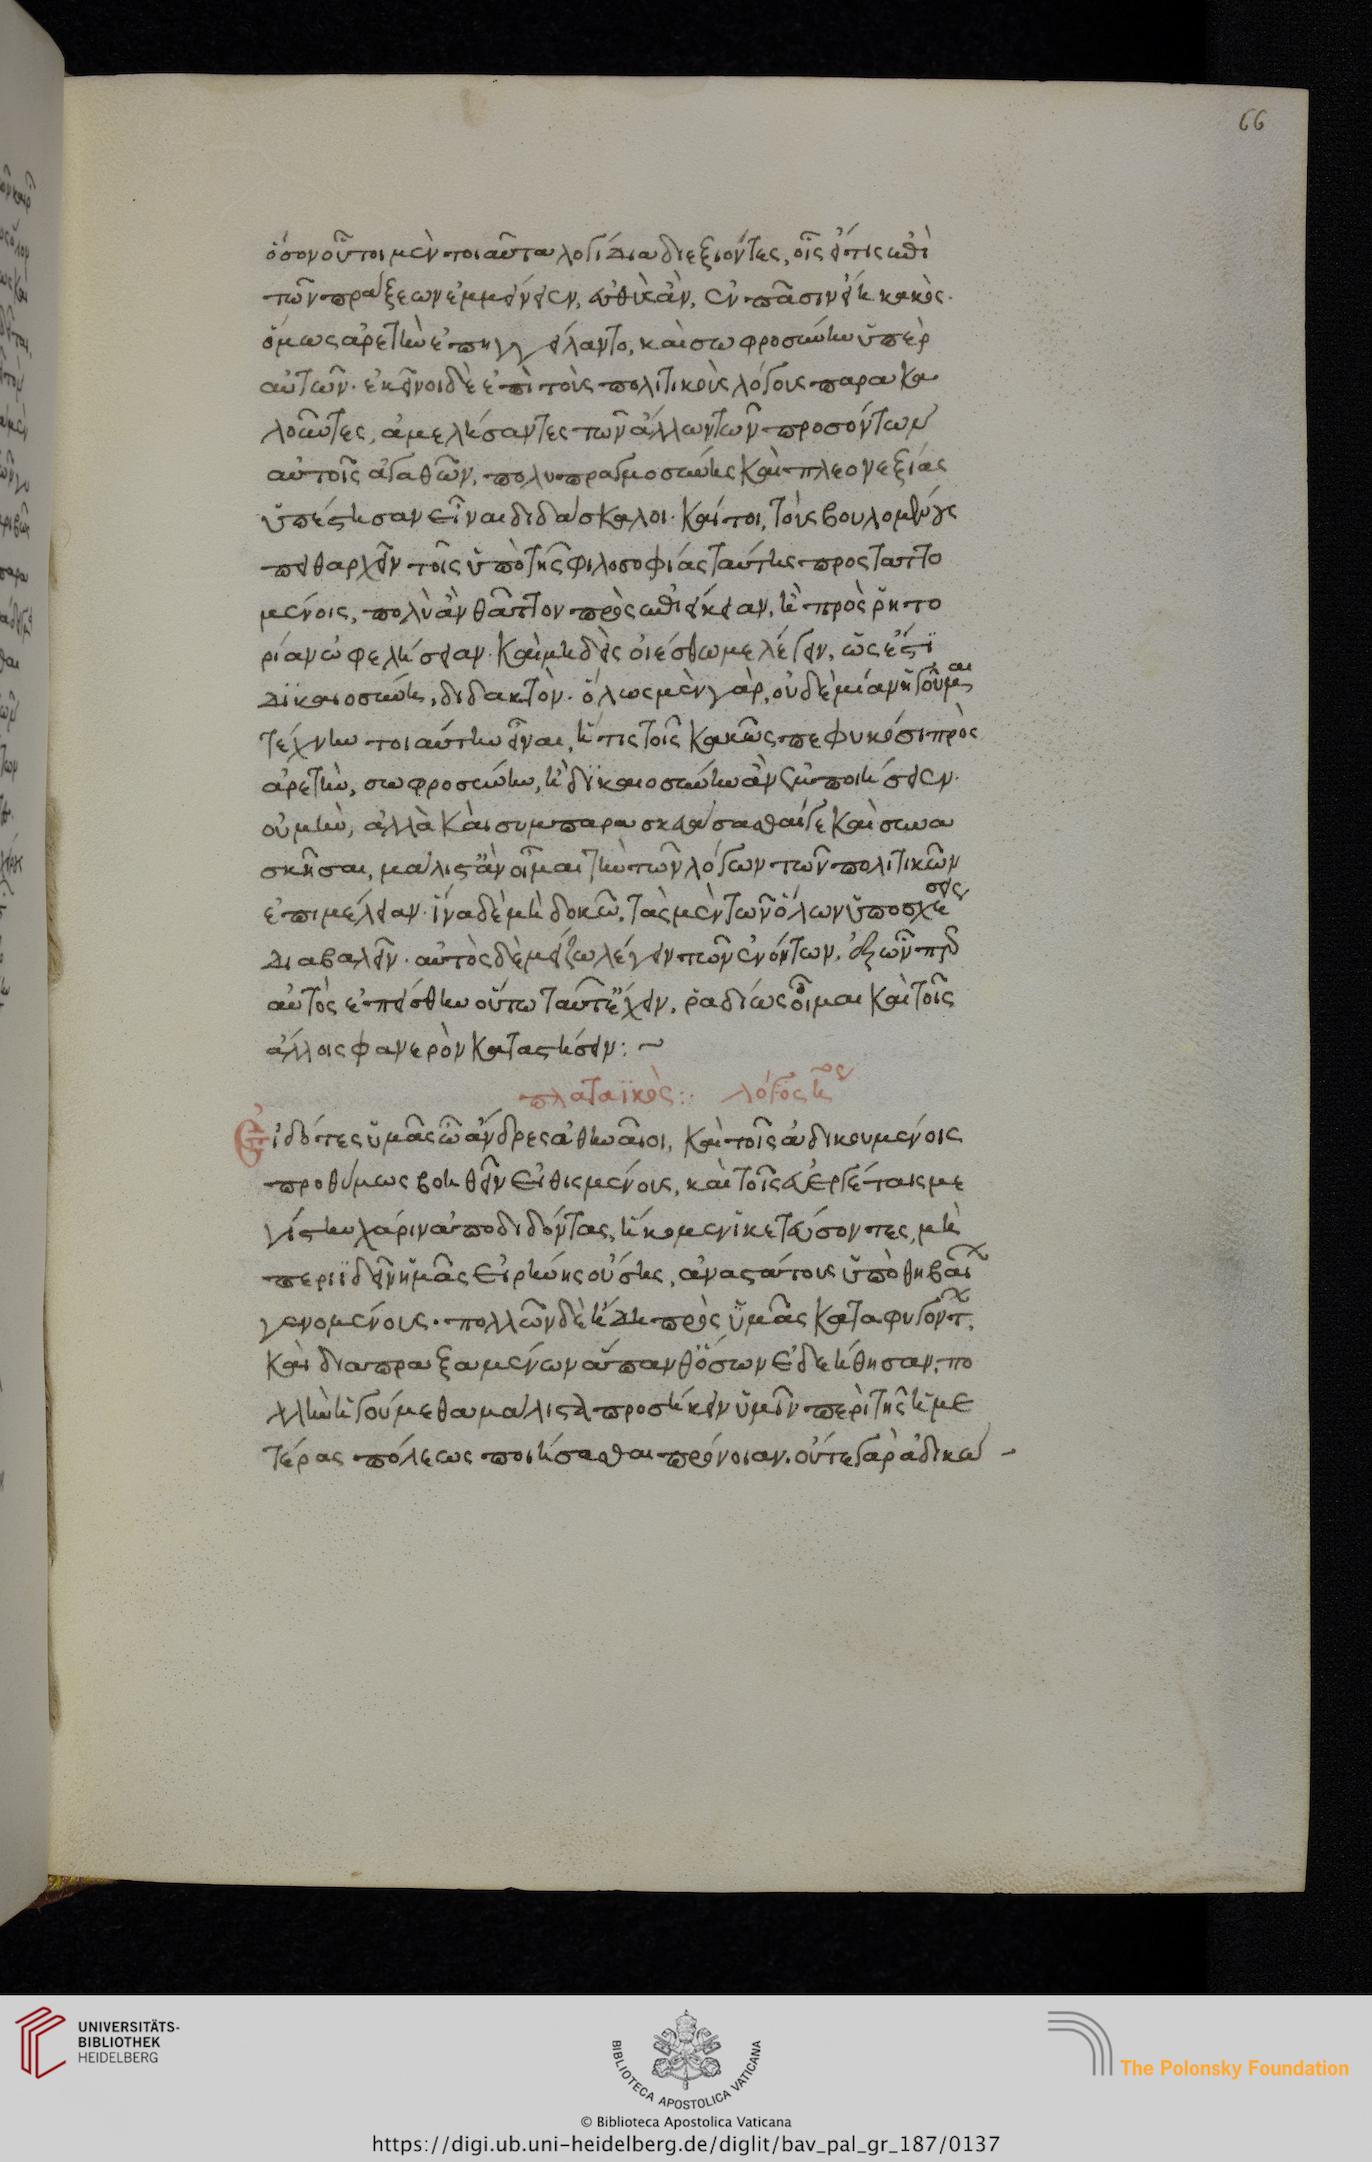 66
ὅσον οὗτοι μὲν τοιαῦτα λογίδια διεξιόντες, οἷς εἴ τις ἐπὶ
τῶν πράξεων ἐμμείνειεν, εὐθὺς ἂν, ἐν πᾶσιν εἴη κακοῖς.
ὅμως ἀρετὴν ἐπηγγείλαντο, καὶ σωφροσύνην ὑπὲρ
αὐτῶν. ἐκεῖνοι δὲ ἐπὶ τοὺς πολιτικοὺς λόγους παρακα
λοῦντες, ἀμελήσαντες τῶν ἄλλων τῶν προσόντων
αὐτοῖς ἀγαθῶν, πολυπραγμοσύνης καὶ πλεονεξίας
ὑπέστησαν εἶναι διδάσκαλοι. καίτοι, τοὺς βουλομένους
πειθαρχεῖν τοῖς ὑπὸ τῆς φιλοσοφίας ταύτης προσταττο
μένοις, πολὺ ἂν θᾶττον πρὸς ἐπιείκειαν, ἢ πρὸς ῥητο
ρίαν ὠφελήσειαν. καὶ μηδεὶς οἰέσθω με λέγειν, ὡς ἔστι
δικαιοσύνη, διδακτόν. ὅλως μὲν γὰρ, οὐδεμίαν ἡγοῦμαι
τέχνην τοιαύτην εἶναι, ἥτις τοῖς κακῶς πεφυκόσι πρὸς
ἀρετὴν, σωφροσύνην, ἢ δικαιοσύνην ἂν ἐμποιήσειεν.
οὐ μὴν, ἀλλὰ καὶ συμπαρασκευάσασθαί γε καὶ συνα
σκῆσαι, μάλιστ' ἂν οἶμαι τὴν τῶν λόγων τῶν πολιτικῶν
ἐπιμέλειαν. ἵνα δὲ μὴ δοκῶ, τὰς μὲν τῶν ἄλλων ὑποσχέσεις
διαβαλεῖν. αὐτὸς δὲ μείζω λέγειν τῶν ἐνόντων, ἐξ ὧν περ
αὐτὸς ἐπείσθην οὕτω ταῦτ' ἔχειν, ῥᾳδίως οἶμαι καὶ τοῖς
ἄλλοις φανερὸν καταστήσειν: ~
πλαταϊκὸς:· λόγος
Εἰδότες ὑμᾶς ὦ ἄνδρες ἀθηναῖοι, καὶ τοῖς ἀδικουμένοις
προθύμως βοηθεῖν εἰθισμένους, καὶ τοῖς εὐεργέταις με
γίστην χάριν ἀποδιδόντας, ἥκομεν ἱκετεύσοντες, μὴ
περιϊδεῖν ἡμᾶς εἰρήνης οὔσης, ἀναστάτους ὑπὸ θηβαίων
γενομένους. πολλῶν δὲ ἤδη πρὸς ὑμᾶς καταφυγόντων,
καὶ διαπραξαμένων ἅπανθ' ὅσων ἐδεήθησαν, πο
λλὴν ἡγούμεθα μάλιστα προσήκειν ὑμῖν περὶ τῆς ἡμε
τέρας πόλεως ποιήσασθαι πρόνοιαν. οὔτε γὰρ ἀδικώ -
UNIVERSITÄTS-
BIBLIOTHEK
HEIDELBERG
BIBLIOTECA APOSTOLICA VATICANA
© Biblioteca Apostolica Vaticana
The Polonsky Foundation
https://digi.ub.uni-heidelberg.de/diglit/bav_pal_gr_187/0137